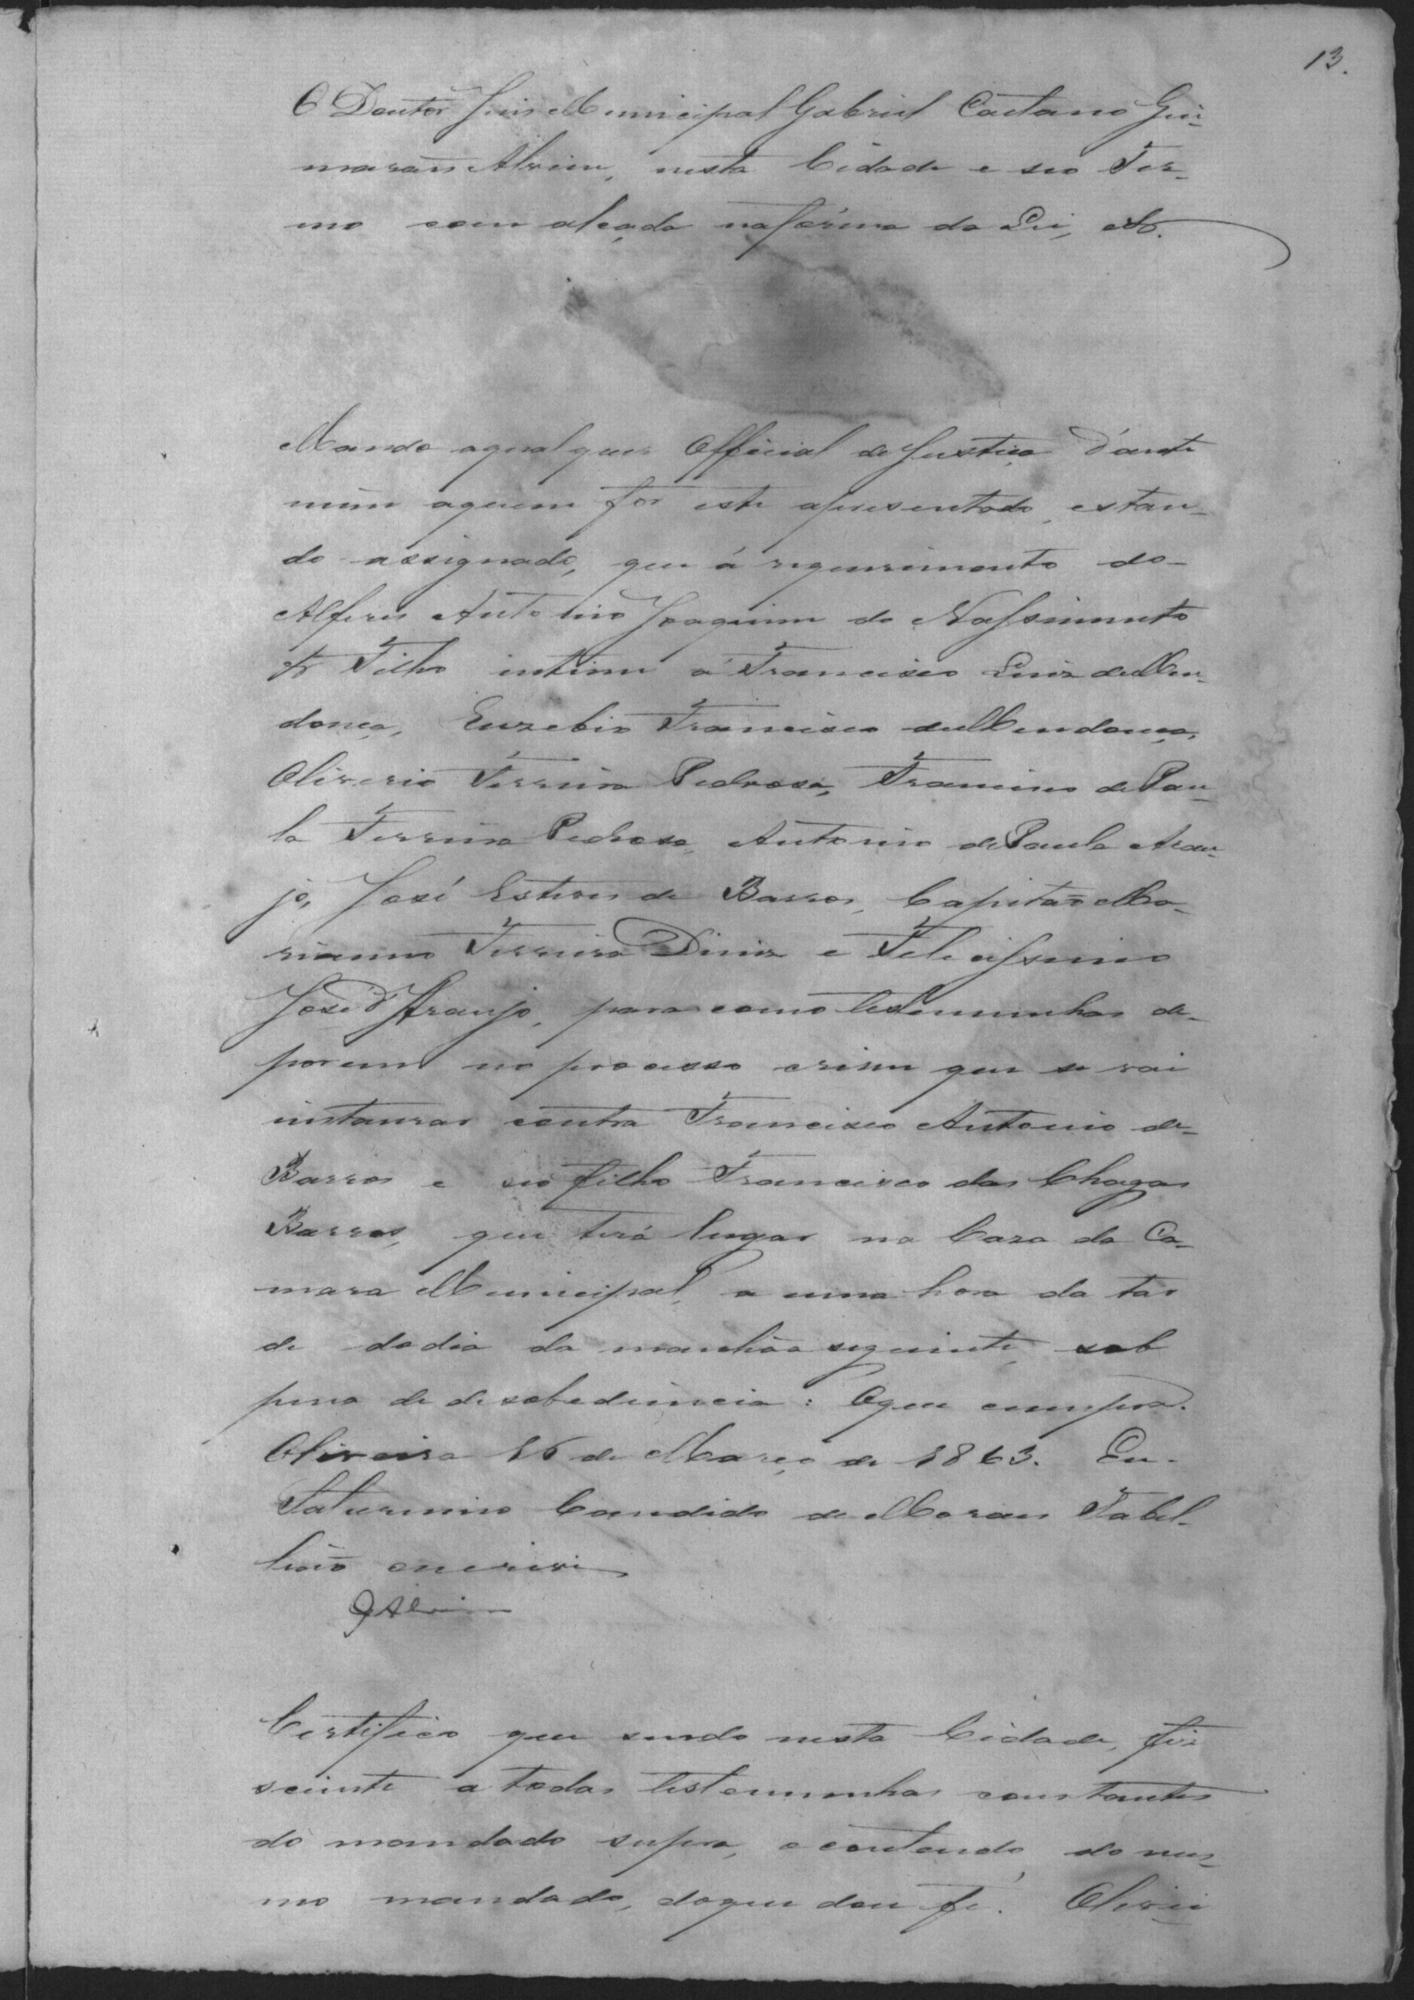 13.
O Doutor Juis Municipal Gabriel Caetano Gui-
maraes Alvim, nesta Cidade e seo Ter-
mo com alçada na fórma da Lei, etc.
Mando aqualquer Official de Justiça d'ante
mim aquem for este apresentado, estan-
do assignado, que á requerimento do
Alferes Antonio Joaquim do Nassimento
Filho intime a Francisco Luiz de Men-
donça, Euzebio Francisco de Mendonça,
Oliverio Ferreira Pedroso, Francisco de Pau-
la Ferreira Pedroso, Antonio de Paula Arau-
jo, José Esteves de Barros, Capitão Ma-
rianno Ferreira Diniz e Felicissimo
José d'Araujo, para como testemunhas de-
porem no processo crime que se vai
instaurar contra Francisco Antonio de
Barros e seo filho Francisco das Chagas
Barros, que terá lugar na Caza da Ca-
mara Municipal, a uma hora da tar
de do dia da manhãa seguinte, sob
pena de desobediencia: Oque cumpra.
Oliveira 16 de Março de 1863. Eu
Saturnino Candido de Moraes Tabel-
lião escrivi
GAlvim
Certifico que sendo nesta Cidade, fiz
sciente a todas testemunhas constantes
do mandado supra, o contendo do mes-
mo mandado, do que dou fé. Olivei